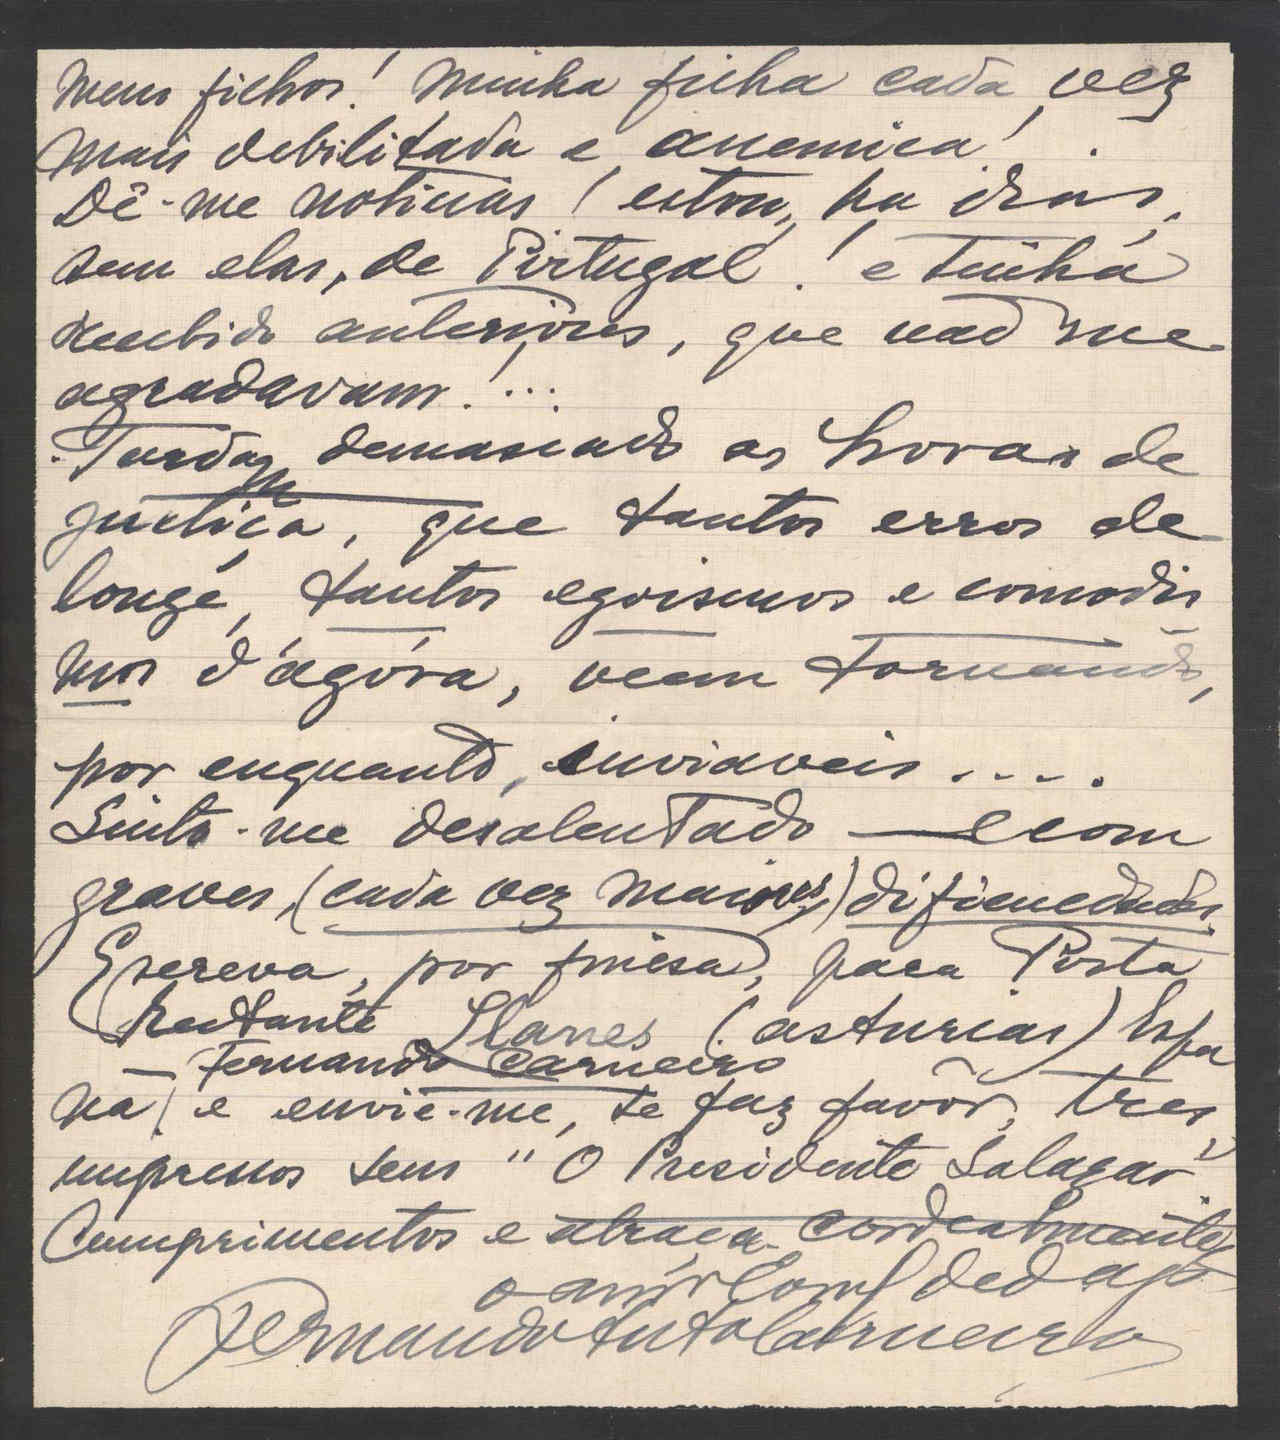 meus filhos! Minha filha cada vez
mais debilitada e anemica!
Dê-me noticias! estou, ha dias,
sem elas, de Portugal! e tinha
recebido anteriores, que não me
agradavam!...
Tardam demasiado as horas de
justiça, que tantos erros de
longe, tantos egoismos e comodis
mos d'agóra, veem tornando,
por enquanto, inviaveis....
Sinto-me desalentado — e com
graves, (cada vez maiores) dificuldades.
Escreva, por finesa, para Posta
Restante Llanes (Asturias) Espa
— Fernando Carneiro
nha) e envie-me, se faz favôr, tres
impressos seus "O Presidente Salazar"
Cumprimentos e abraça cordealmente
o am.º ded
Fernando Carneiro